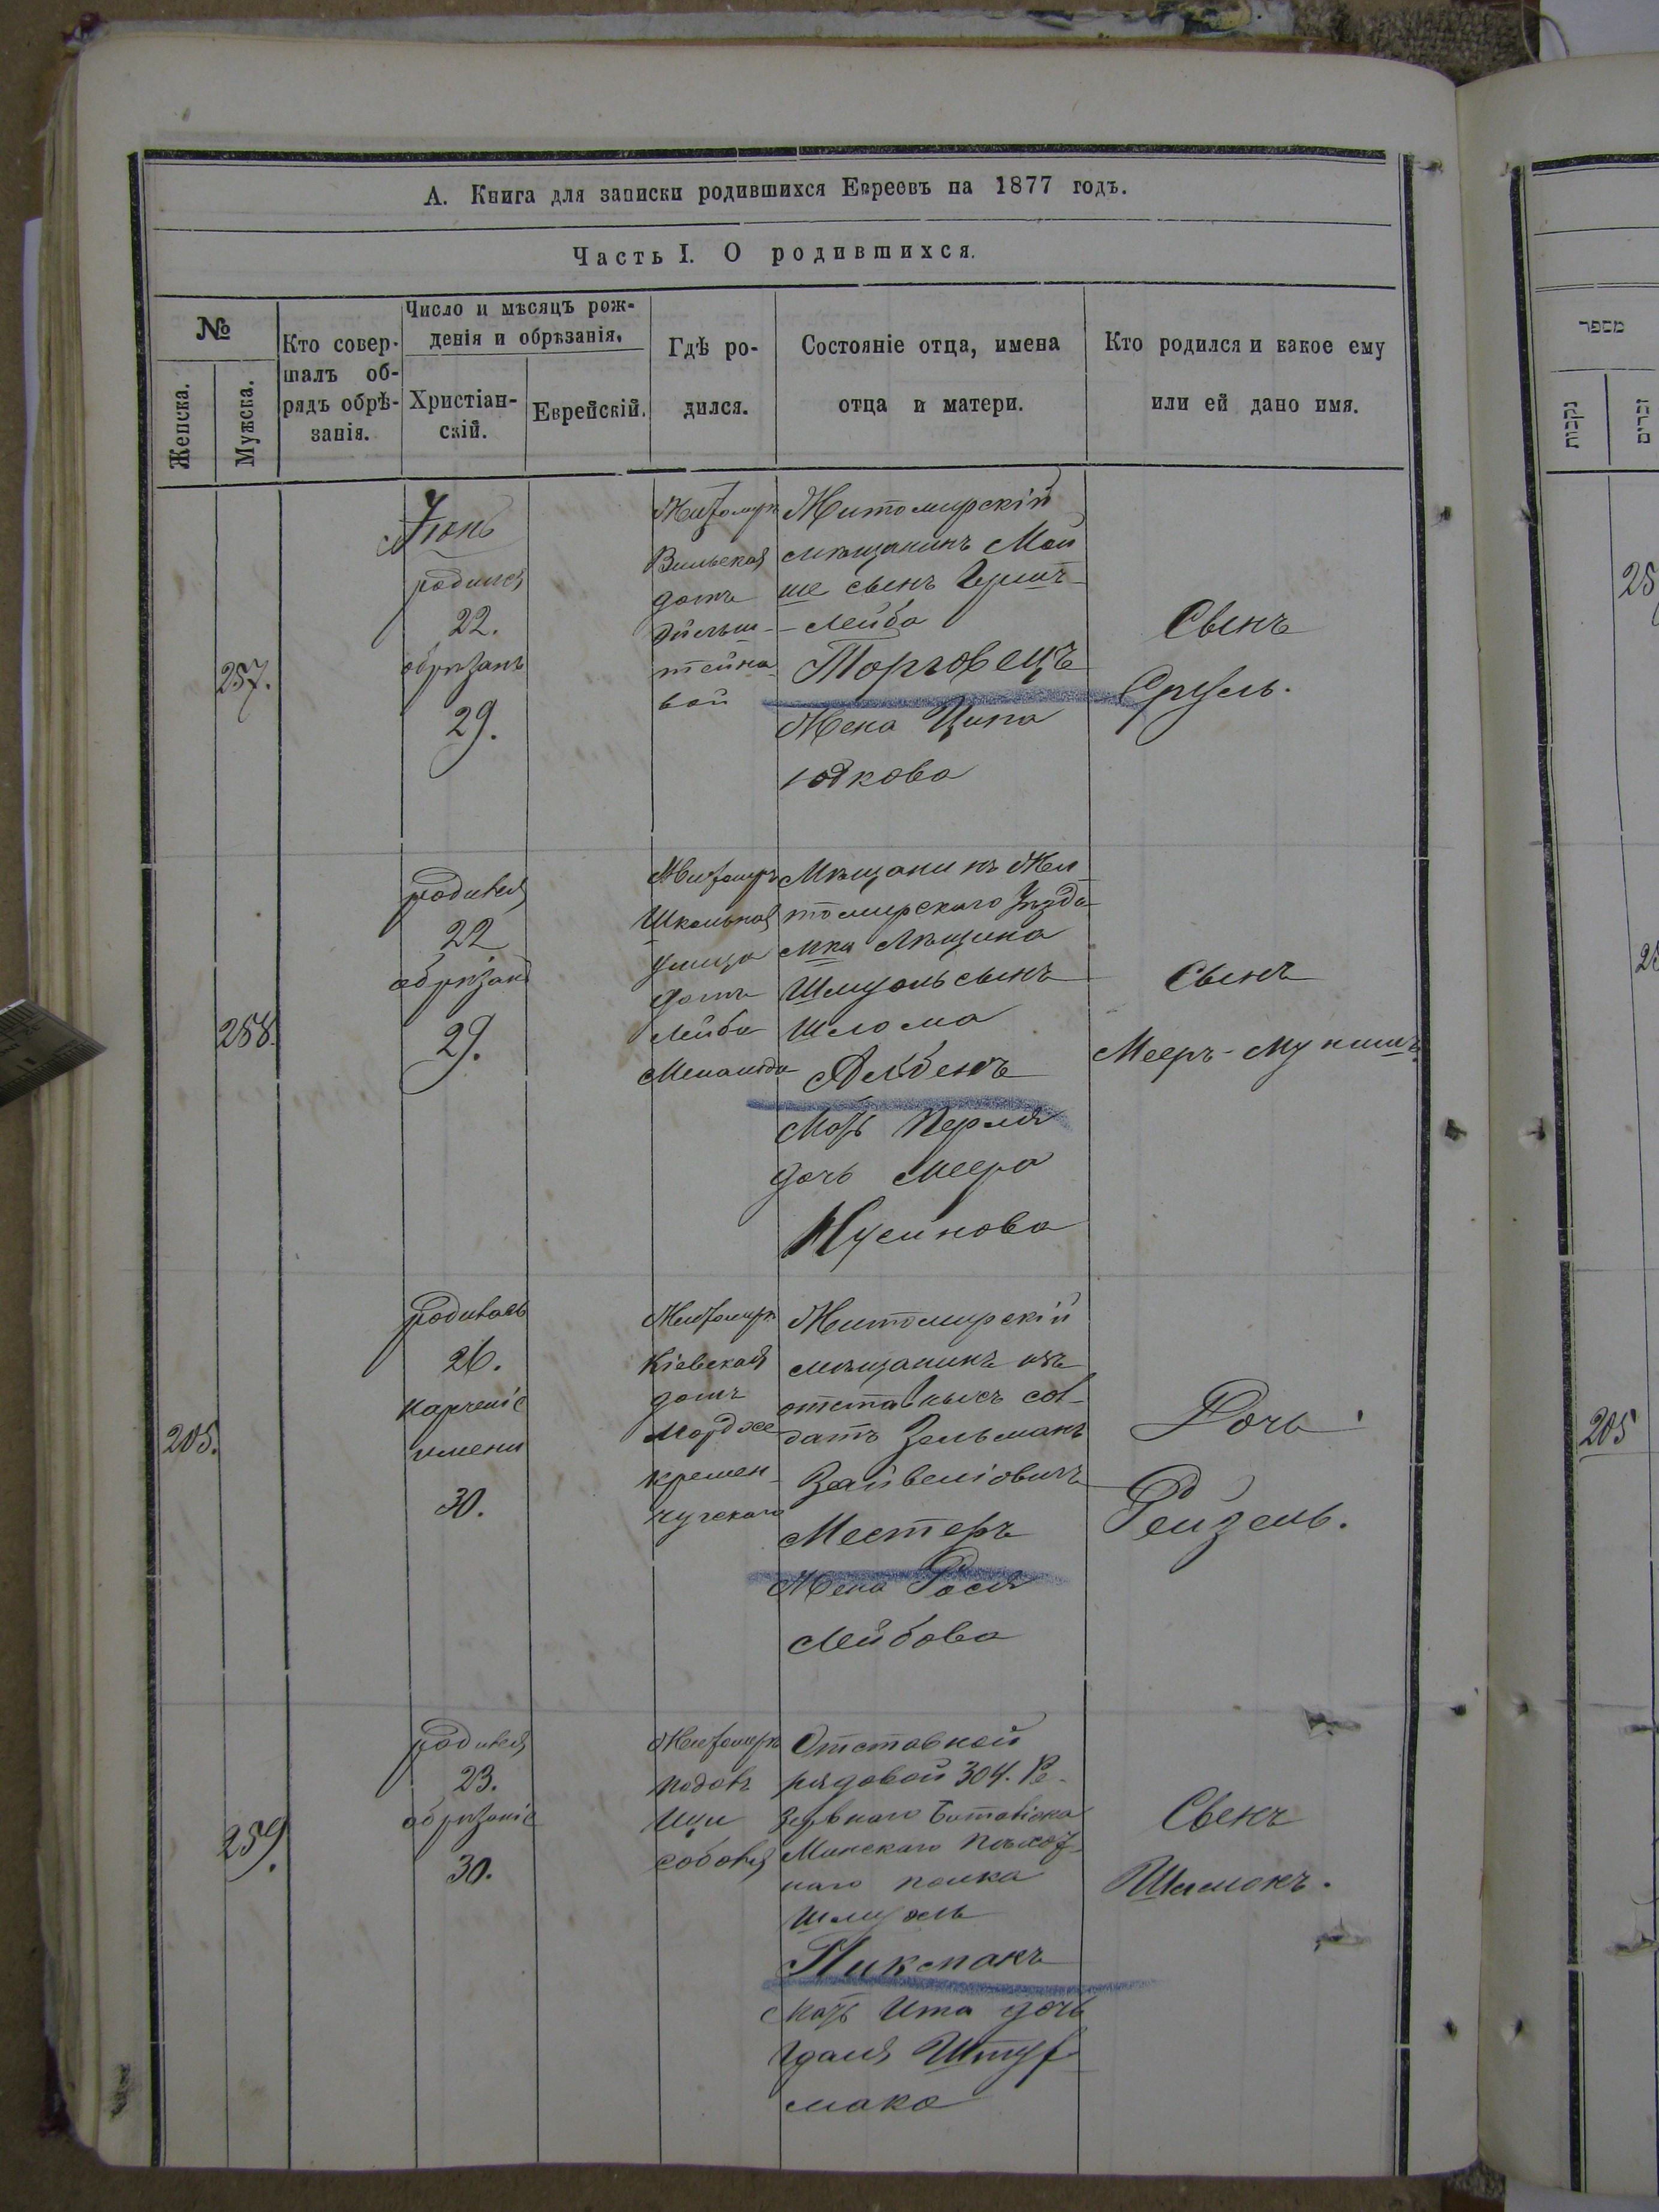 А. Книга для записки родившихся Евреевъ на 1877 годъ.
Часть I. О родившихся.
№
Женска.
Мужска.
Кто совер-
шалъ об-
рядъ обрѣ-
занія.
Число и мѣсяцъ рож-
денія и обрѣзанія.
Христіан-
скій.
Еврейскій.
Гдѣ ро-
дился.
Состояніе отца, имена
отца и матери.
Кто родился и какое ему
или ей дано имя.
257.
Іюнь
родился
22.
обрѣзанъ
29.
Житомиръ
Вильская
домъ
тейна
вой
Житомирскій
мѣщанинъ Мой
ше сынъ Гершъ-
-Лейба
Торговецъ
Жена Ципа
Юдкова
Сынъ
Сруль.
258.
родился
22
обрѣзанъ
29.
Житомиръ
Школьная
улица
домъ
Лейба
Мѣщанинъ Жи
томирскаго Уѣзда
мка Лѣщина
Шмуль сынъ
Шлома
Мать Перля
дочь Меера
Нусинова
Сынъ
205.
родилась
26.
нарченіе
имени
30.
Житомиръ
Кіевская
домъ
Мордхе
кремен-
чугскаго
Житомирскій
мѣщанинъ изъ
отставныхъ сол-
датъ Зельманъ
Зейвеліовичъ
Местеръ
Жена Рося
Лейбова
Дочь
Рейзель.
259.
родился
23.
обрѣзаніе
30.
Житомиръ
подовъ
собовъ
Отставной
рядовой 304. Ре-
зервнаго Баталіона
Минскаго Пѣхот-
наго полка
Шмуль
Пикманъ
Мать Ита дочь
Гдаля
мана
Сынъ
Шимонъ.
מספר
נקבות
זכרים
25
25
205